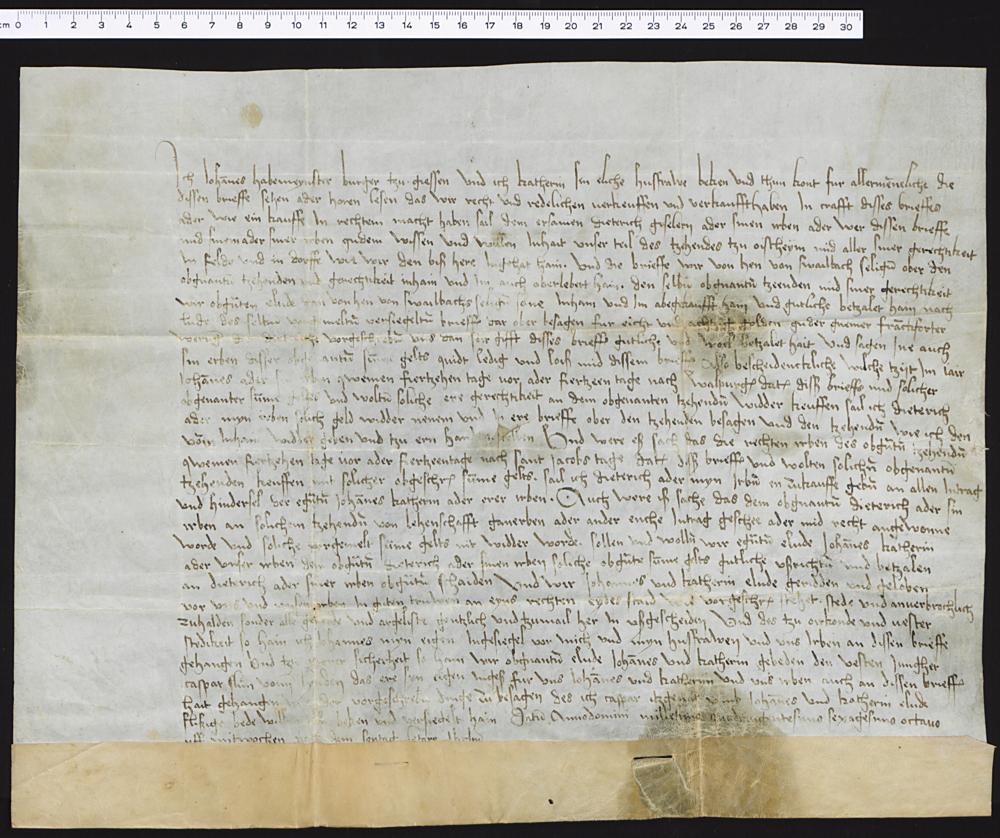 cm 0 1 2 3 4 5 6 7 8 9 10 11 12 13 14 15 16 17 18 19 20 21 22 23 24 25 26 27 28 29 30
Ich Johannes habemeynster burger tzu giessen Und ich katherin sin eliche husfrawe bekennen Und thun kont fur allermeneliche die
dissen brieffe sehen ader horen lesen das wir recht und redelichen verkeuffen und verkaufft haben In crafft disses brieffes
ader wie ein kauffe In rechtem macht haben sal dem ersamen dieterich giselern ader sinen erben ader wer dissen brieffe
mid sinem ader siner erben gudem wissen und willen Inhait unser teil des tzehendes tzu ostheym mid aller siner gerechtikeit
In felde und in dorffe wie wir den biß here Ingehat hain Und die brieffe wir von hen von swailbach seligen ober den
obgnantn tzehenden und gerechtikeit inhain und Im auch oberlebert hain den selbn obgnantn tzeenden und siner gerechtikeit
wir obgnten elude von hen von swailbachs seligen sone Inhain und Im abegekaufft hain und gutliche betzalet hain nach
lude des selben versiegelten brieffs dar ober besagen fur eicht und golden guder gnemer franckforter
werunge vorgeltz uns von sor gifft disses brieffs gutliche und wole betzalet hait Und sagen Ine auch
sin erben disser obgnantn summe gelts quidt ledig und loß mid dissem brieffe Also bescheidenetliche wilche tzijt Im jair
Johannes ader sin erben qwemen fiertzehen tage vor ader fiertzeen tage nach walpurg dat diß brieffs mid solicher
obgenanter summe geldes und wolten soliche ere gerechtikeit an dem obgenanten tzehenden widder keuffen sail ich dieterich
ader myn erben solich geld widder nemen und In ere brieffe ober den tzehenden besagen und den tzehenden wie ich den
von Inhain widder geben und tzu ern handen stellen Und were eß sach das die rechten erben des obgnten tzehenden
qwemen fiertzehen tage vor ader fiertzeentage nach sant Jacobs tage dat diß brieffs und wolten solichen obgenantn
tzehenden keuffen mit solicher obgeschr summe gelts sail ich dieterich ader myn Erben en zukauffe geben an allen Intrag
und hindersel der egnten Johannes katherin ader erer erben Auch were eß sache das dem obgnantn dieterich ader sin
erben an solichem tzehenden von lehenschafft ganerben ader ander enche Intrag geschee ader mid recht angewonne
worde und soliche vorgemelt summe gelts nit widder worde sollen und wollen wir egnten elude Johannes katherin
ader unser erben den obgnten dieterich ader sinen erben soliche obgnte summe gelts gutliche ußrichten und betzalen
an dieterich ader siner erben obgnten schaiden Und wir Johannes und katherin elude gereden und geloben
vor uns und unser erben In guten truwen an eyns rechten eydes stad wie vorgeschr stehet stede und unverbrochlich
zuhalden sonder alle geverde und argeliste gentzlich und tzumail her In ußgescheiden Und des tzu orkonde und vester
stedikeit so hain ich Johannes myn eigen Ingesiegel vor mich und myn husfrawen und uns Erben an dissen brieffe
gehangen Und tzu merer sicherheit so hain wir obgnantn elude Johannes und katherin gebeden den vesten Jungher
caspar das ere syn eigen Inges fur uns Johannes und katherin und uns erben auch an dissen brieffe
hait gehangen der vorgeschreben dinge zu besagen des ich caspar itzgenant umb Johannes und katherin elude
flißige bede willen und versiegelt hain Datum Annodomini millesimo quadringentesimo sexagesimo octavo
uff mitwochen dem sontag